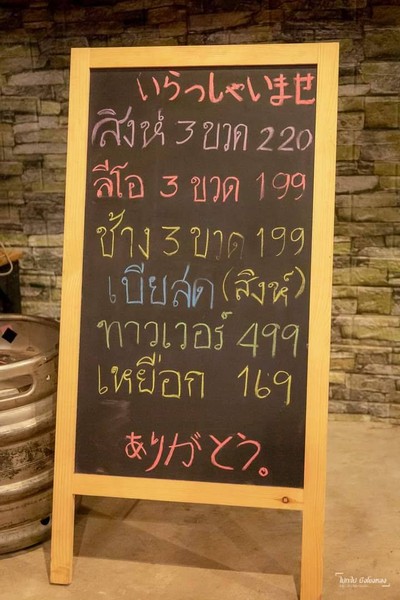 いらっしゃいませ
สิงห์ 3 ขวด 220
ลีโอ 3 ขวด 199
ช้าง 3 ขวด 199
เบียสด (สิงห์)
ทาวเวอร์ 499
เหยือก 169
ありがとう。